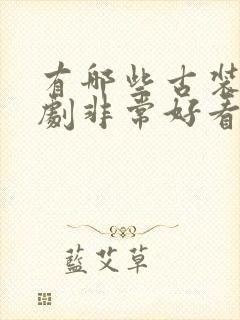 有哪些古装
劇非常好看
藍艾草